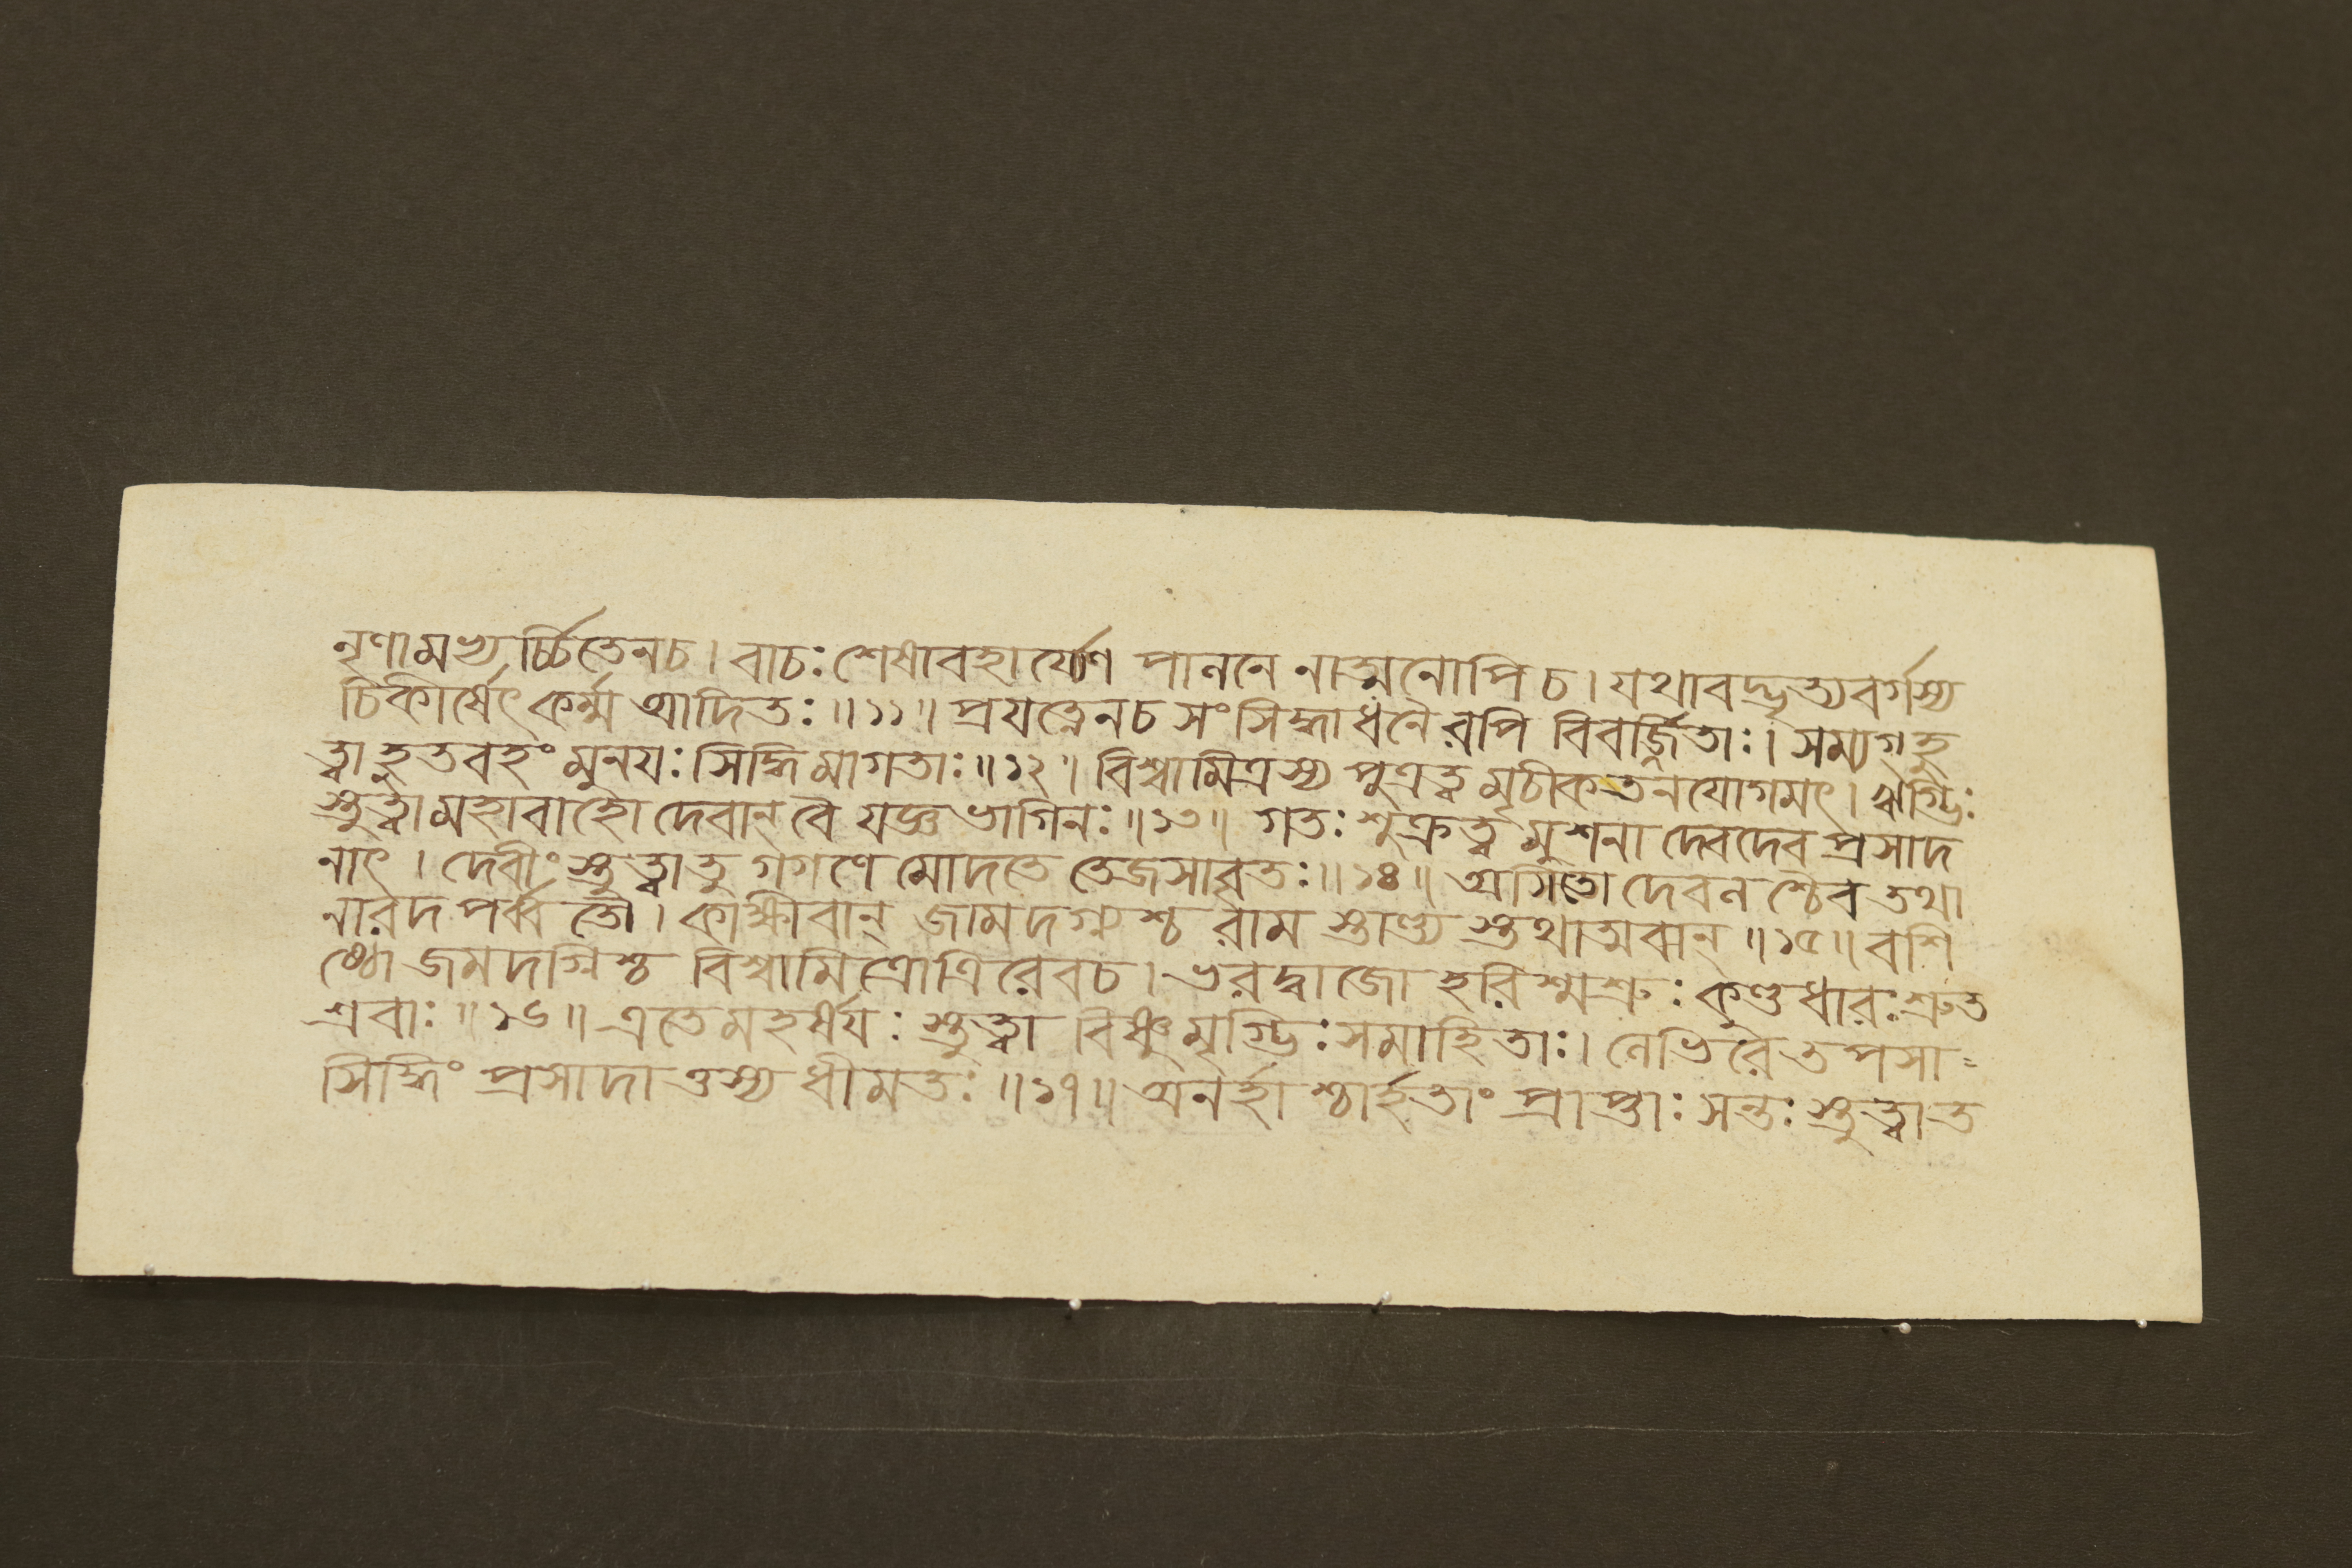 নৃণামভ্যর্চ্চিতেনচ। বাচঃ শেষাবহার্য্যেণ পাননে নাত্মনোপি চ। যথাবদ্ভৃত্যবর্গস্য
চিকীর্ষেৎ কর্ম্ম আদিতঃ॥১১॥ প্রযত্নেনচ সংসিদ্ধাধনৈরপি বিবর্জ্জিতাঃ। সম্যগ্‌ হু
ত্বাহুতবহং মুনযঃ সিদ্ধিমাগতাঃ॥১২॥ বিশ্বামিত্রস্য পুত্রত্বমৃচীকতনযোগমৎ। ঋগ্ভিঃ
স্তুত্বামহাবাহো দেবান্‌ বৈ যজ্ঞভাগিনঃ॥১৩॥ গতঃ শুক্রত্বমুশনা দেবদেবপ্রসাদ
নাৎ। দেবীং স্তুত্বাতু গগণে মোদতে তেজসাবৃতঃ॥১৪॥ অসিতো দেবনশ্চৈব তথা
নারদপর্ব্বতৌ। কাক্ষীবান্‌ জামদগ্ন্যশ্চ রামস্তাণ্ড্যস্তথাত্মবান্‌॥১৫॥ বশি
ষ্ঠো জমদগ্নিশ্চ বিশ্বামিত্রোত্রিরেবচ। ভরদ্বাজো হরিশ্মশ্রুঃ কুণ্ডধারঃ শ্রুত
শ্রবাঃ॥১৬॥ এতেমহর্ষযঃ স্তুত্বা বিষ্ণুমৃগ্ভিঃ সমাহিতাঃ। নেভিরে তপসা-
সিদ্ধিং প্রসাদাত্তস্য ধীমতঃ॥১৭॥ অনর্হাশ্চার্হতাং প্রাপ্তাঃ সন্তঃ স্তুত্বাত